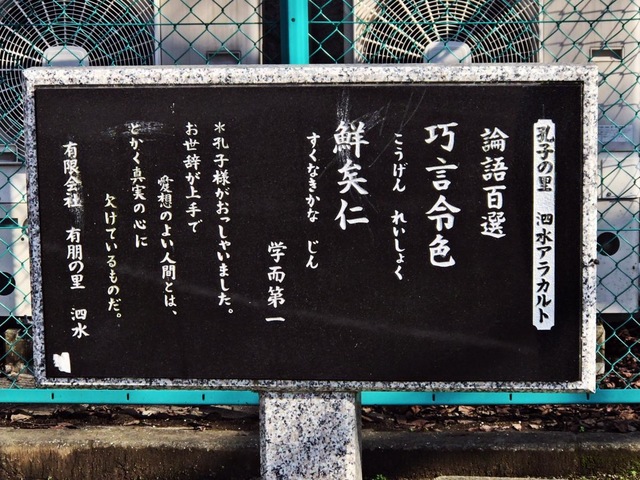 孔子の里　泗水アラカルト
論語百選
巧言令色
こうげん　れいしょく
鮮矣仁
すくなきかな　じん
学而第一
＊孔子様がおっしゃいました。
お世辞が上手で
愛想のよい人間とは、
とかく真実の心に
欠けているものだ。
有限会社　有朋の里　泗水